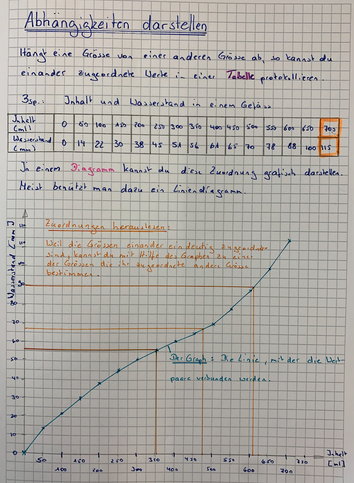 Abhängigkeiten darstellen
Hängt eine Grösse von einer anderen Grösse ab, so kannst du
einander zugeordnete Werte in einer Tabelle protokollieren.
Bsp.: Inhalt und Wasserstand in einem Gefäss
Inhalt [ml] 0 50 100 150 200 250 300 350 400 450 500 550 600 650 700
Wasserstand [mm] 0 14 22 30 38 45 51 56 61 65 70 78 88 100 115
In einem Diagramm kannst du diese Zuordnung grafisch darstellen.
Meist benützt man dazu ein Liniendiagramm.
Wasserstand [mm]
Zuordnungen herauslesen:
Weil die Grössen einander eindeutig zugeordnet
sind, kannst du mit Hilfe des Graphen zu einer
der Grössen die ihr zugeordnete andere Grösse
bestimmen.
Der Graph: Die Linie, mit der die Wert
paare verbunden werden.
Inhalt
[ml]
50 150 250 350 450 550 650 750
100 200 300 400 500 600 700